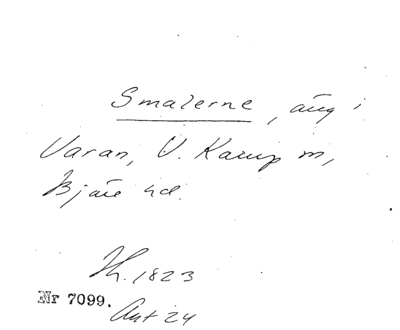 Smalerne, äng i
Varan, V. Karup sn,
Bjäre hd.
Th. 1823
Nr 7099.
Akt 24